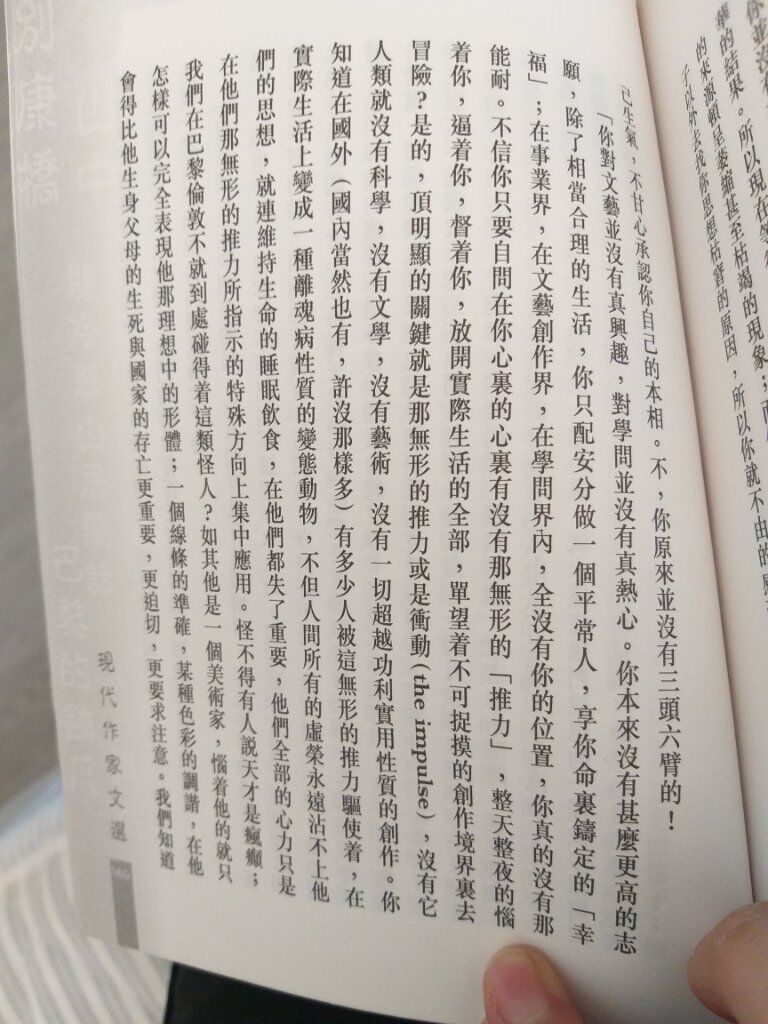 你並沒有
華的結果。所以現在等
的來源頓呈萎縮甚至枯竭的現象；而
于以外去找你思想枯窘的原因，所以你就不由的
己生氣，不甘心承認你自己的本相。不，你原來並沒有三頭六臂的！
「你對文藝並沒有真興趣，對學問並沒有真熱心。你本來沒有甚麼更高的志
願，除了相當合理的生活，你只配安分做一個平常人，享你命裏鑄定的「幸
福」；在事業界，在文藝創作界，在學問界內，全沒有你的位置，你真的沒有那
能耐。不信你只要自問在你心裏的心裏有沒有那無形的「推力」，整天整夜的惱
着你，逼着你，督着你，放開實際生活的全部，單望着不可捉摸的創作境界裏去
冒險？是的，頂明顯的關鍵就是那無形的推力或是衝動(the impulse)，沒有它
人類就沒有科學，沒有文學，沒有藝術，沒有一切超越功利實用性質的創作。你
知道在國外（國內當然也有，許沒那樣多）有多少人被這無形的推力驅使着，在
實際生活上變成一種離魂病性質的變態動物，不但人間所有的虛榮永遠沾不上他
們的思想，就連維持生命的睡眠飲食，在他們都失了重要，他們全部的心力只是
在他們那無形的推力所指示的特殊方向上集中應用。怪不得有人說天才是瘋癲；
我們在巴黎倫敦不就到處碰得着這類怪人？如其他是一個美術家，惱着他的就只
怎樣可以完全表現他那理想中的形體；一個線條的準確，某種色彩的調諧，在他
會得比他生身父母的生死與國家的存亡更重要，更迫切，更要求注意。我們知道
現代作家文選